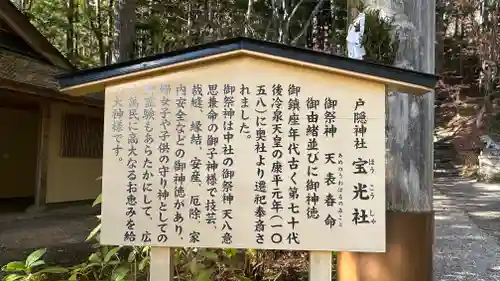 戸隠神社 宝光社
ほうこうしゃ
御祭神 天表春命
あめのうわはるのみこと
御由緒並びに御神徳
御鎮座年代古く第七十代
後冷泉天皇の康平元年(一〇
五八)に奥社より遷祀奉斎さ
れました。
御祭神は中社の御祭神 天八意
思兼命の御子神様で技芸、
裁縫、縁結、安産、厄除、家
内安全などの御神徳があり、
婦女子や子供の守り神としての
御霊験もあらたかにして、広
く万民に高大なるお恵みを給
う大神様です。